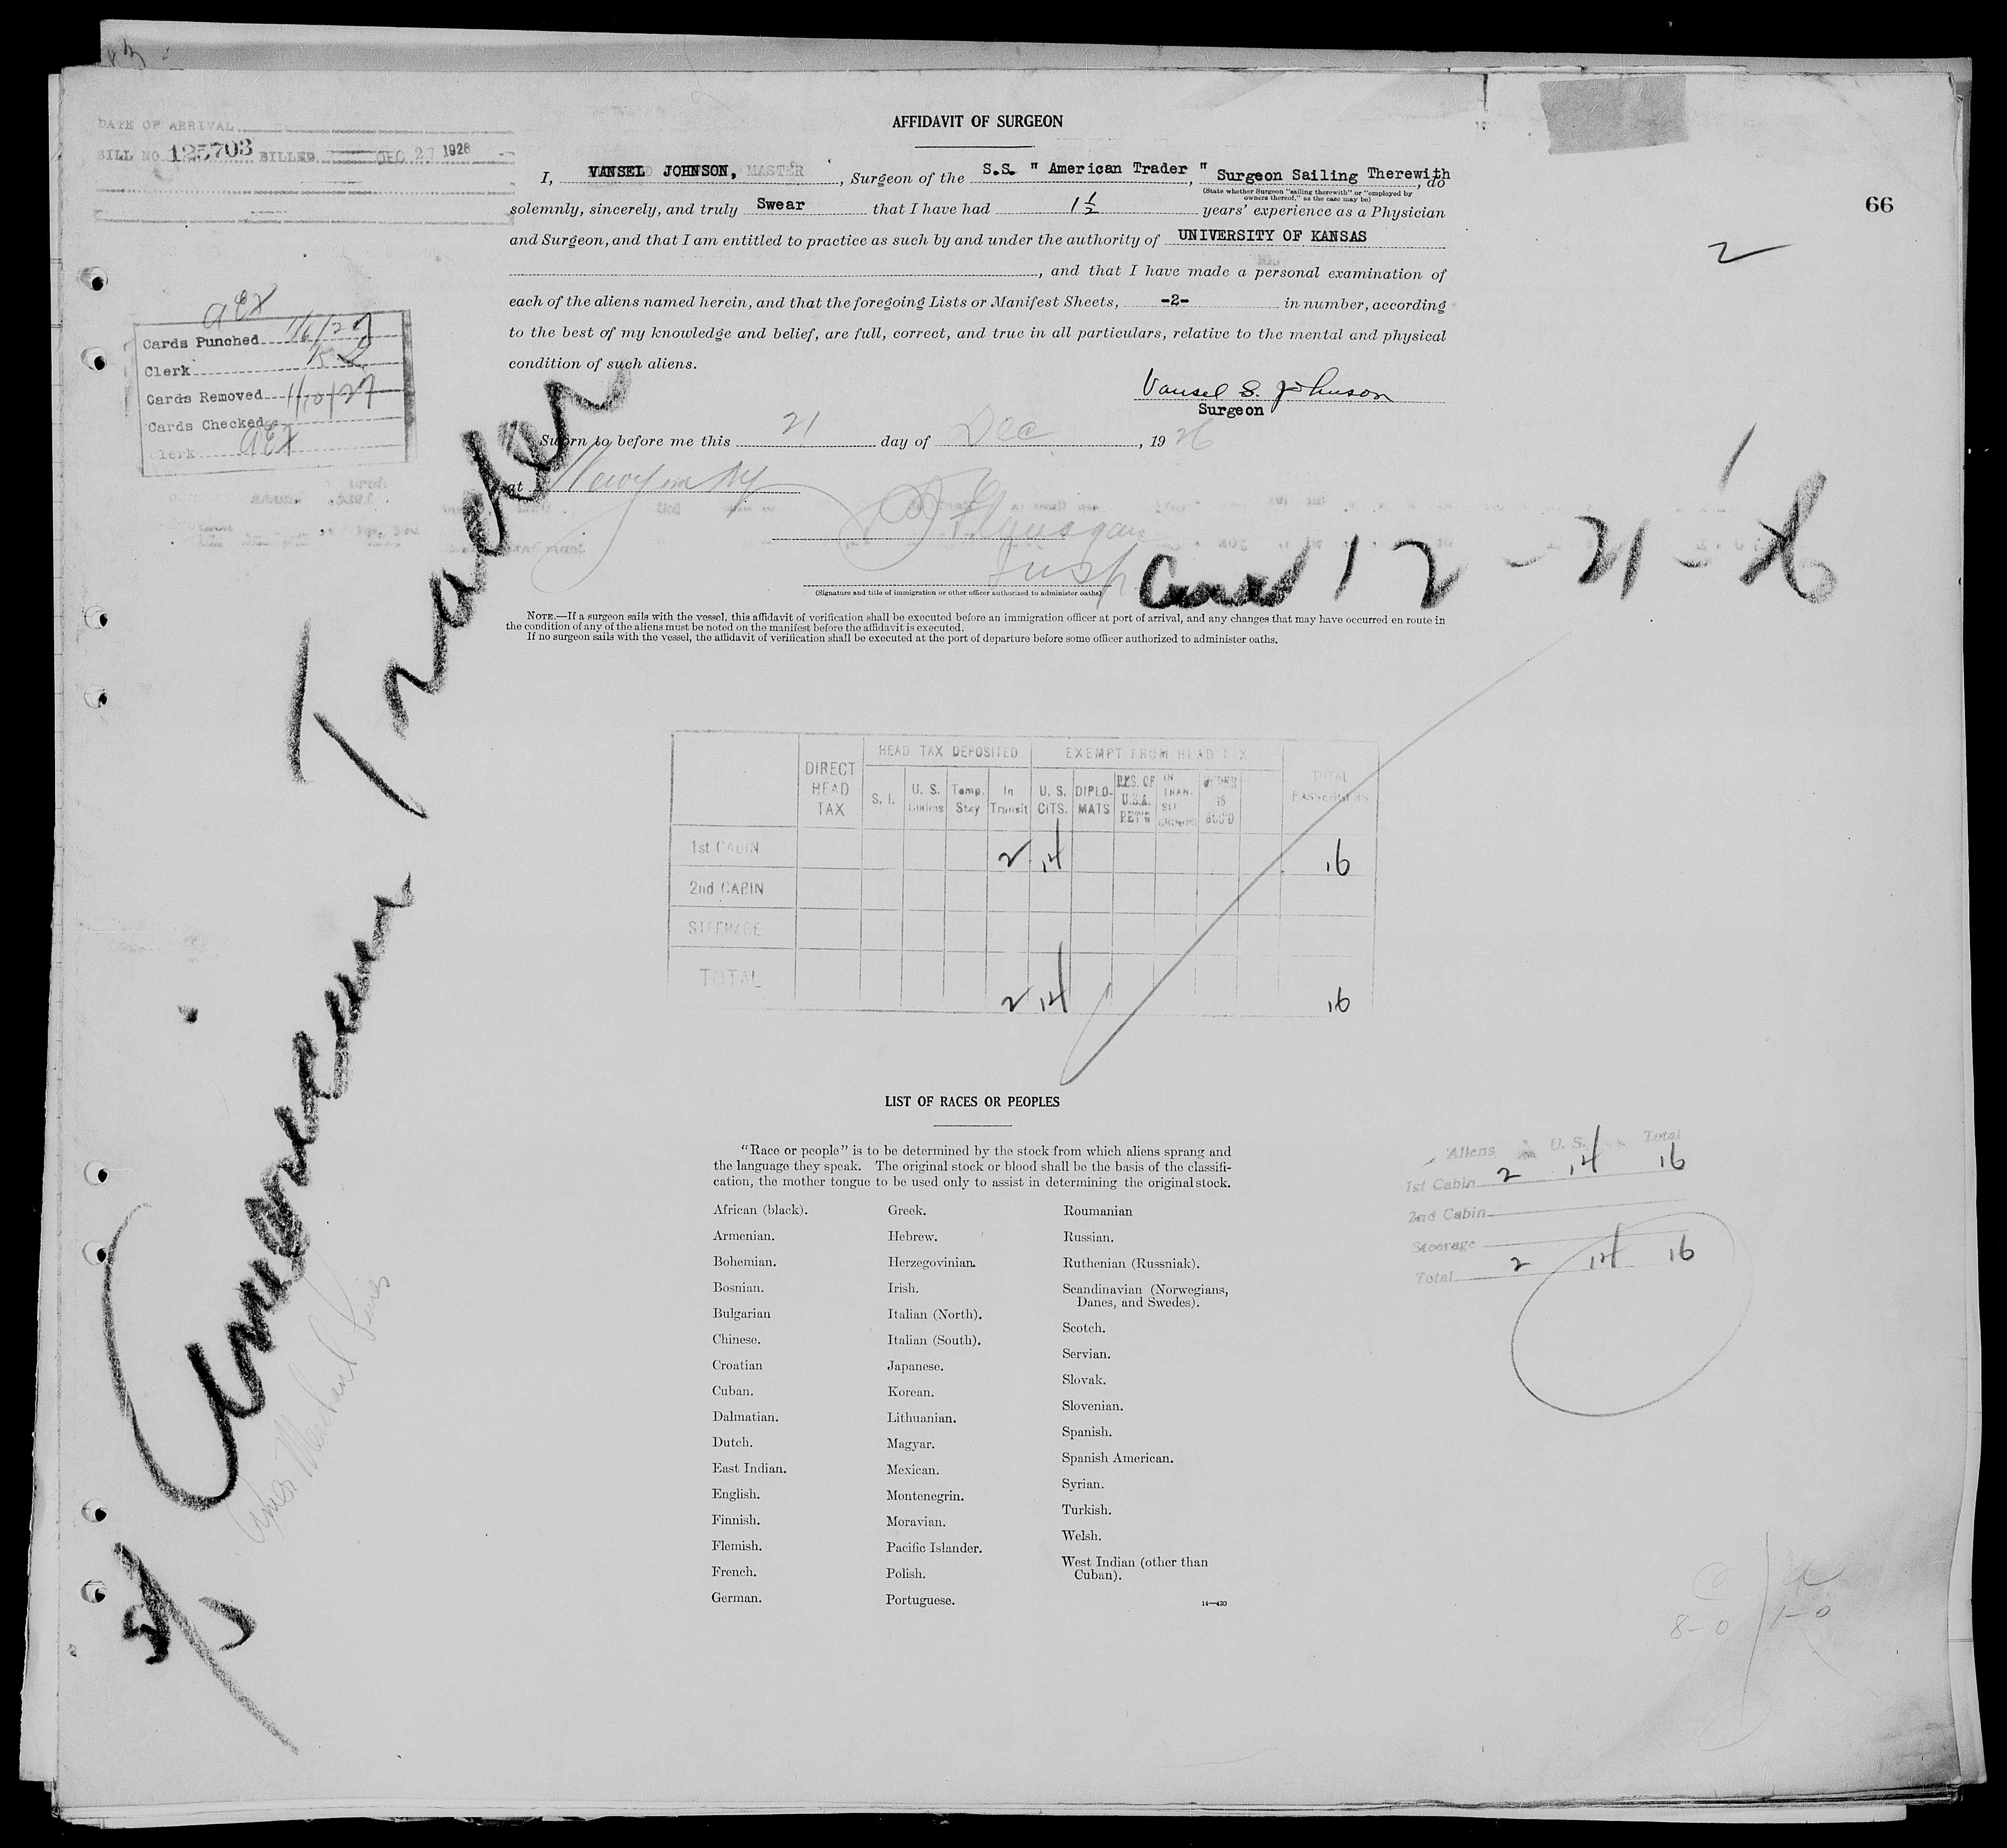 DATE OF ARRIVAL
BILL NO. 125703 BILLED DEC 27 1926
AFFIDAVIT OF SURGEON
I, VANSEL JOHNSON, MASTER, Surgeon of the S.S. " American Trader ", Surgeon Sailing Therewith, do
(State whether Surgeon "sailing therewith" or "employed by
owners thereof," as the case may be)
solemnly, sincerely, and truly Swear that I have had 1½ years' experience as a Physician
and Surgeon, and that I am entitled to practice as such by and under the authority of UNIVERSITY OF KANSAS
, and that I have made a personal examination of
each of the aliens named herein, and that the foregoing Lists or Manifest Sheets, -2- in number, according
to the best of my knowledge and belief, are full, correct, and true in all particulars, relative to the mental and physical
condition of such aliens.
66
2
aEx
Cards Punched 1/6/27
Clerk
Cards Removed 1/10/27
Cards Checked
Clerk aEx
Vansel S. Johnson
Surgeon
Sworn to before me this 21 day of Dec, 1926
at New York NY
Insp
(Signature and title of immigration or other officer authorized to administer oaths)
12-21-26
NOTE.—If a surgeon sails with the vessel, this affidavit of verification shall be executed before an immigration officer at port of arrival, and any changes that may have occurred en route in
the condition of any of the aliens must be noted on the manifest before the affidavit is executed.
If no surgeon sails with the vessel, the affidavit of verification shall be executed at the port of departure before some officer authorized to administer oaths.
S/S American Trader
Amer Merchant Lines
HEAD TAX DEPOSITED EXEMPT FROM HEAD TAX
DIRECT HEAD TAX S. I. U. S. Temp. Stay In Transit U. S. CITS. DIPLO-MATS RES. OF U.S.A. RET'G IN TRAN-SIT UNDER 16 ACC'D TOTAL PASSENGERS
1st CABIN 2 14 16
2nd CABIN
STEERAGE
TOTAL 2 14 16
LIST OF RACES OR PEOPLES
"Race or people" is to be determined by the stock from which aliens sprang and
the language they speak. The original stock or blood shall be the basis of the classifi-
cation, the mother tongue to be used only to assist in determining the original stock.
African (black).
Armenian.
Bohemian.
Bosnian.
Bulgarian
Chinese.
Croatian
Cuban.
Dalmatian.
Dutch.
East Indian.
English.
Finnish.
Flemish.
French.
German.
Greek.
Hebrew.
Herzegovinian.
Irish.
Italian (North).
Italian (South).
Japanese.
Korean.
Lithuanian.
Magyar.
Mexican.
Montenegrin.
Moravian.
Pacific Islander.
Polish.
Portuguese.
Roumanian
Russian.
Ruthenian (Russniak).
Scandinavian (Norwegians,
Danes, and Swedes).
Scotch.
Servian.
Slovak.
Slovenian.
Spanish.
Spanish American.
Syrian.
Turkish.
Welsh.
West Indian (other than
Cuban).
14—430
Aliens U. S. Total
1st Cabin 2 14 16
2nd Cabin
Steerage
Total 2 14 16
8-0 1-0